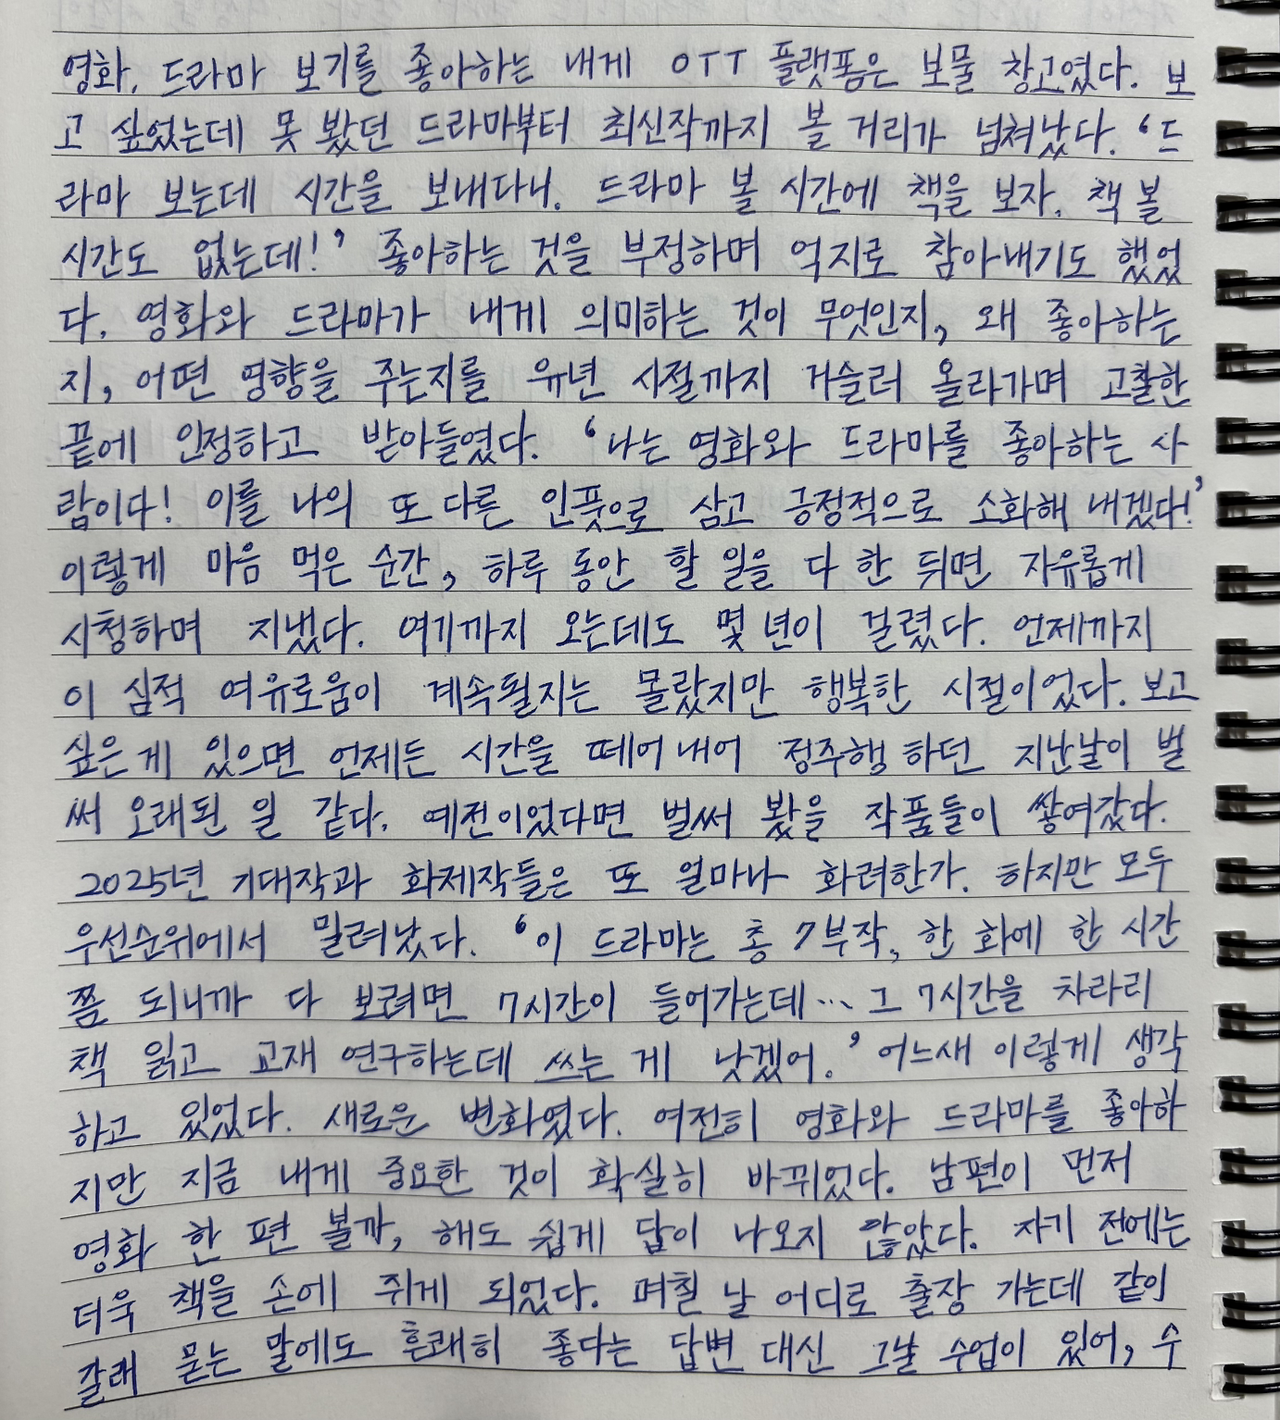 영화, 드라마 보기를 좋아하는 내게 OTT 플랫폼은 보물 창고였다. 보
고 싶었는데 못 봤던 드라마부터 최신작까지 볼 거리가 넘쳐났다. ‘드
라마 보는데 시간을 보내다니. 드라마 볼 시간에 책을 보자. 책 볼
시간도 없는데!’ 좋아하는 것을 부정하며 억지로 참아내기도 했었
다. 영화와 드라마가 내게 의미하는 것이 무엇인지, 왜 좋아하는
지, 어떤 영향을 주는지를 유년 시절까지 거슬러 올라가며 고찰한
끝에 인정하고 받아들였다. ‘나는 영화와 드라마를 좋아하는 사
람이다! 이를 나의 또 다른 인풋으로 삼고 긍정적으로 소화해 내겠다!’
이렇게 마음 먹은 순간, 하루 동안 할 일을 다 한 뒤면 자유롭게
시청하며 지냈다. 여기까지 오는데도 몇 년이 걸렸다. 언제까지
이 심적 여유로움이 계속될지는 몰랐지만 행복한 시절이었다. 보고
싶은 게 있으면 언제든 시간을 떼어 내어 정주행 하던 지난날이 벌
써 오래된 일 같다. 예전이었다면 벌써 봤을 작품들이 쌓여갔다.
2025년 기대작과 화제작들은 또 얼마나 화려한가. 하지만 모두
우선순위에서 밀려났다. ‘이 드라마는 총 7부작, 한 화에 한 시간
쯤 되니까 다 보려면 7시간이 들어가는데... 그 7시간을 차라리
책 읽고 교재 연구하는데 쓰는 게 낫겠어.’ 어느새 이렇게 생각
하고 있었다. 새로운 변화였다. 여전히 영화와 드라마를 좋아하
지만 지금 내게 중요한 것이 확실히 바뀌었다. 남편이 먼저
영화 한 편 볼까, 해도 쉽게 답이 나오지 않았다. 자기 전에는
더욱 책을 손에 쥐게 되었다. 며칠 날 어디로 출장 가는데 같이
갈래 묻는 말에도 흔쾌히 좋다는 답변 대신 그날 수업이 있어, 수